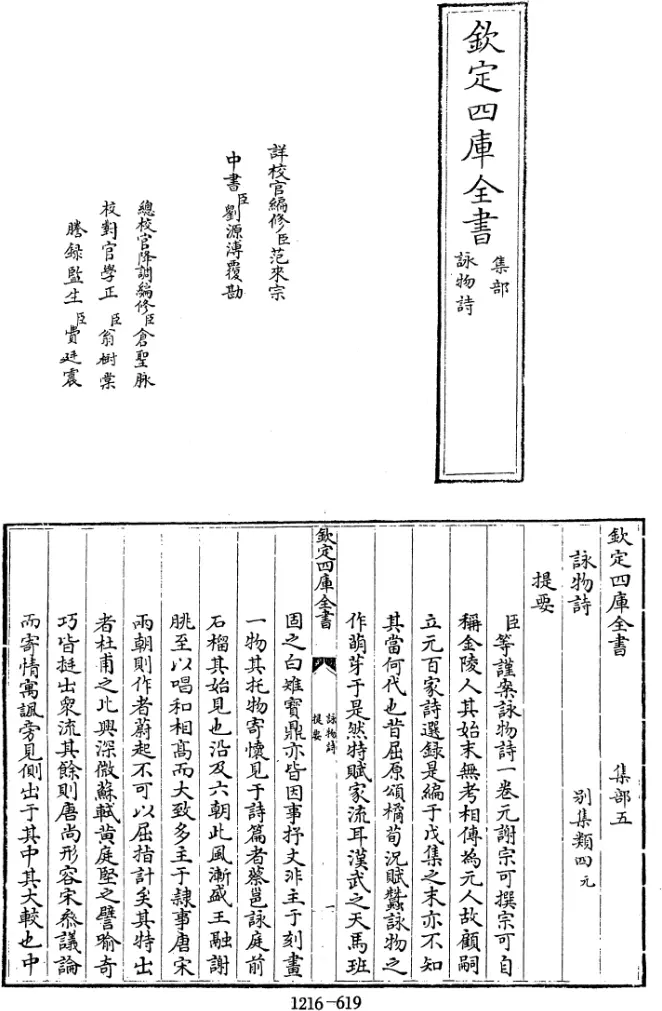 欽定四庫全書
集部
詠物詩
詳校官編修臣范來宗
中書臣劉源溥覆勘
總校官降調編修臣倉聖脉
校對官學正臣翁樹棠
謄録監生臣費廷震
欽定四庫全書 集部五
詠物詩 别集類四元
提要
臣等謹案詠物詩一卷元謝宗可撰宗可自
稱金陵人其始末無考相傳為元人故顧嗣
立元百家詩選録是編于戊集之末亦不知
其當何代也昔屈原頌橘荀況賦蠶詠物之
作萌芽于是然特賦家流耳漢武之天馬班
欽定四庫全書
詠物詩
提要
一
固之白雉寶鼎亦皆因事抒文非主于刻畫
一物其托物寄懷見于詩篇者蔡邕詠庭前
石榴其始見也沿及六朝此風漸盛王融謝
朓至以唱和相髙而大致多主于隷事唐宋
兩朝則作者蔚起不可以屈指計矣其特出
者杜甫之比興深微蘇軾黄庭堅之譬喻奇
巧皆挺出衆流其餘則唐尚形容宋叅議論
而寄情寓諷旁見側出于其中其大較也中
1216-619